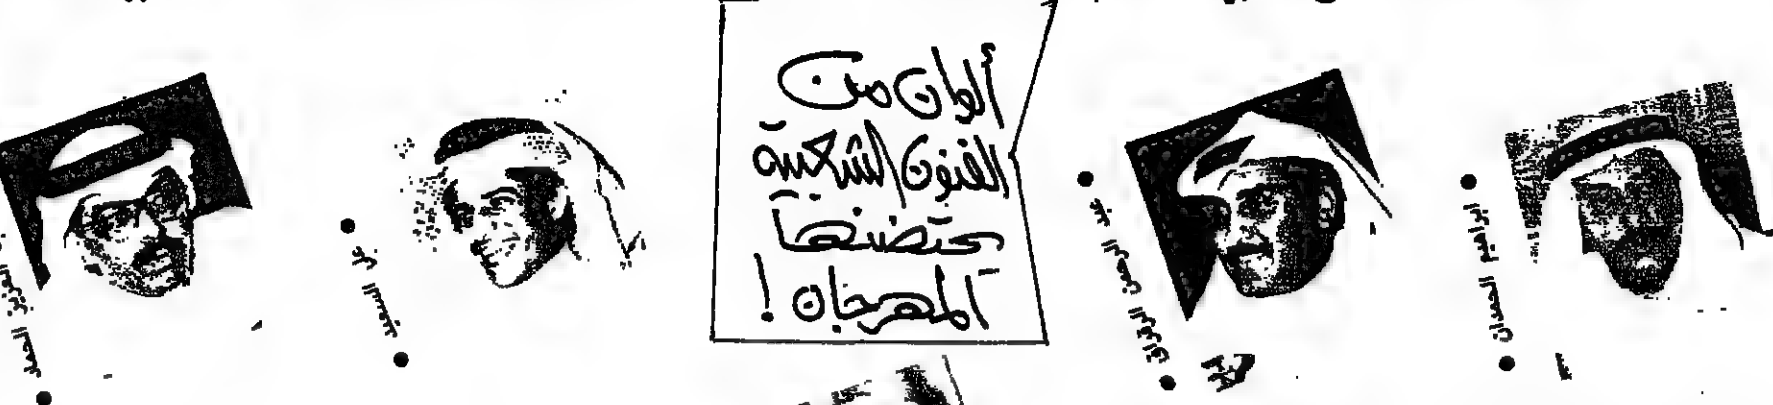 ألوان من
الفنون الشعبية
يحتضنها
المهرجان !
ابراهيم الحمدان
عبد الرحمن الرقراق
علي السعيد
العزيز الحمد